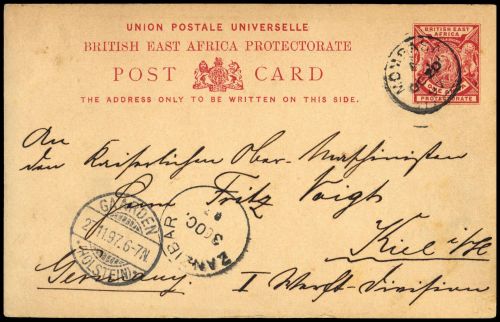 UNION POSTALE UNIVERSELLE
BRITISH EAST AFRICA PROTECTORATE
POST CARD
THE ADDRESS ONLY TO BE WRITTEN ON THIS SIDE.
BRITISH EAST
AFRICA
PROTECTORATE
MOMBASA
An
den Kaiserlichen Ober-Maschinisten
Herrn Fritz Voigt
Kiel i/H
Germany. I Werft-Division
GAARDEN
27.11.97.6-7N.
(HOLSTEIN)
ZANZIBAR
OC